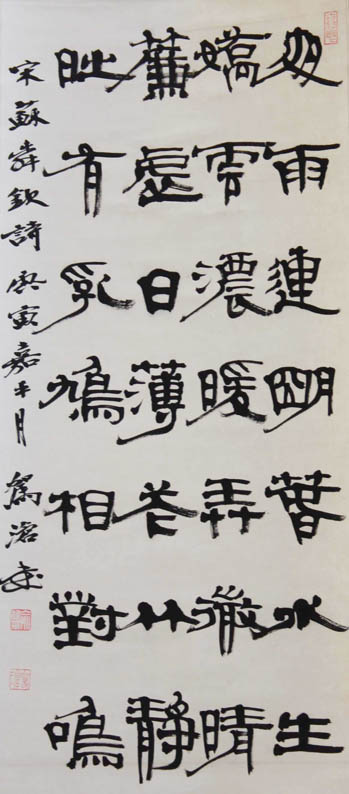 夜雨連明春水生
嬌雲濃暖弄微晴
簾虛日薄花竹靜
時有乳鳩相對鳴
宋蘇舜欽詩 庚寅嘉平月